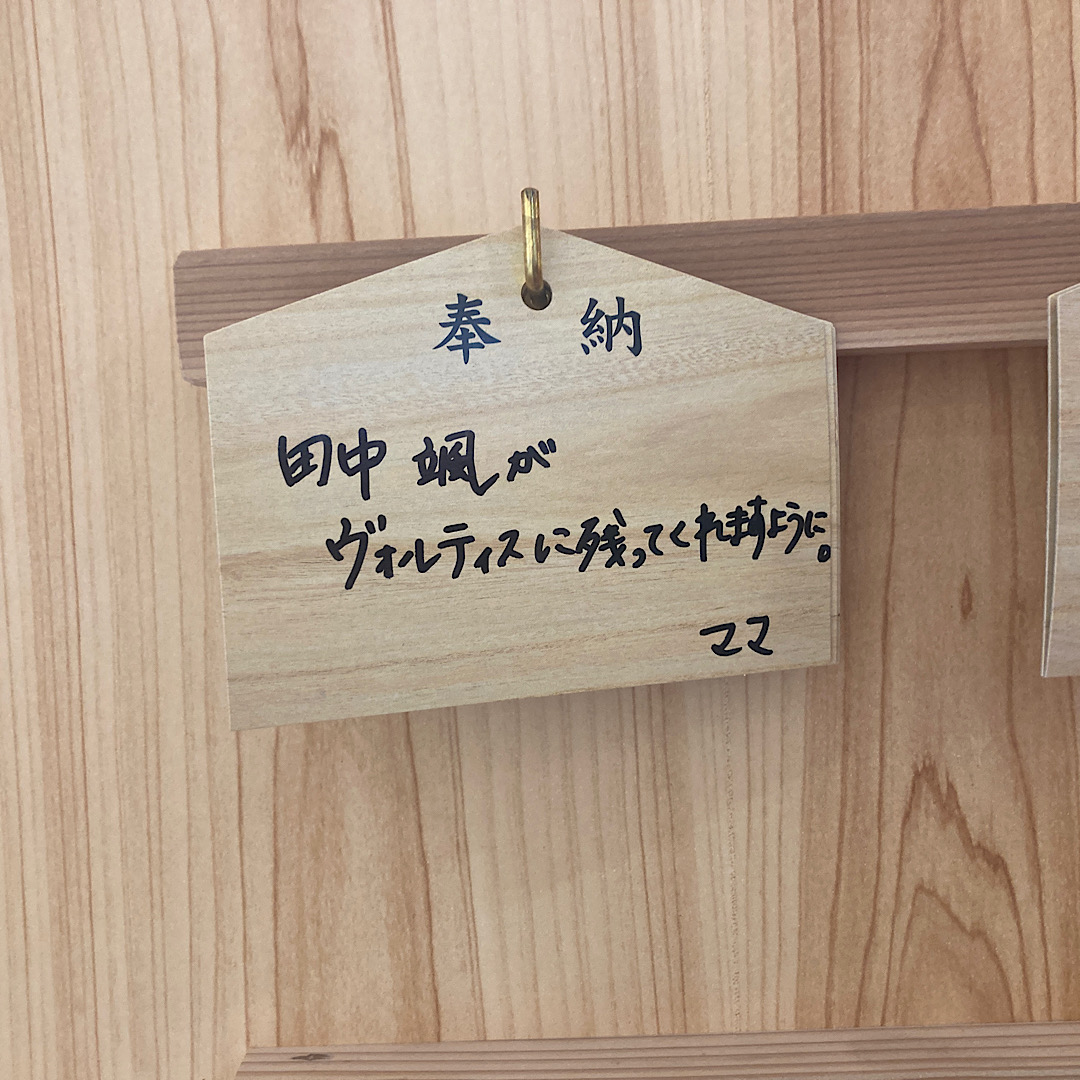 奉納
田中 颯が
ヴォルティスに残ってくれますように。
ママ